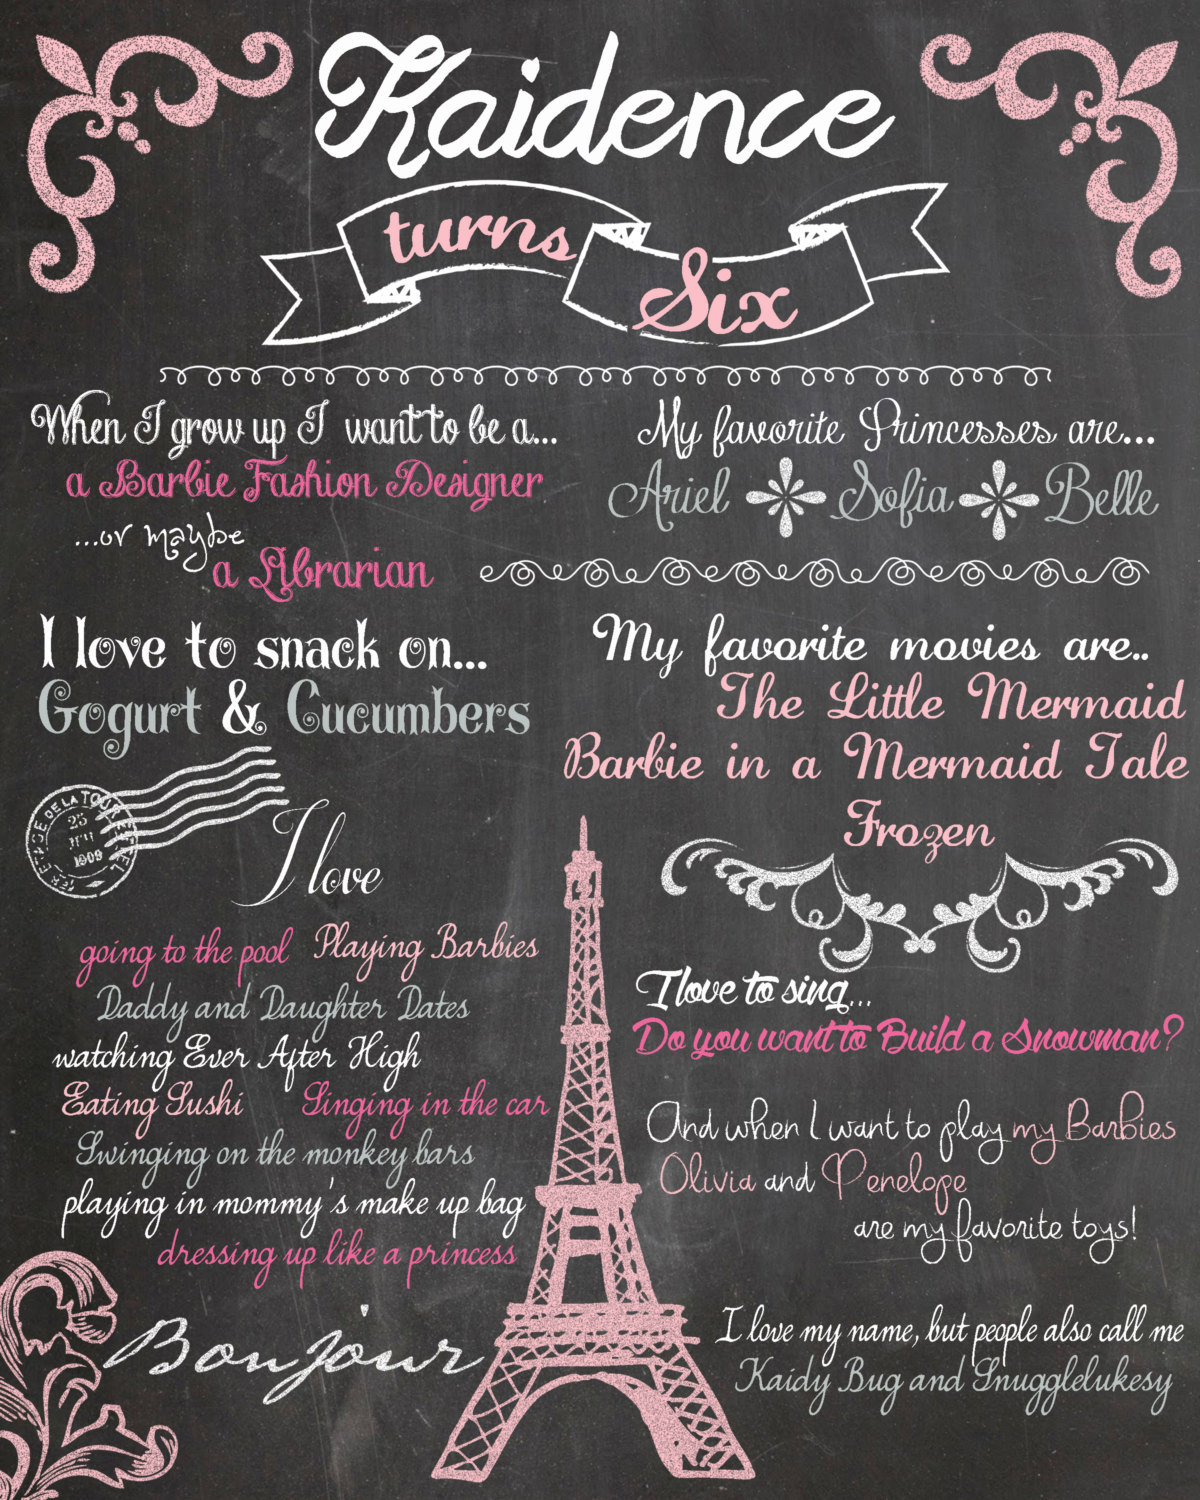 Kaidence
turns
Six
When I grow up I want to be a...
a Barbie Fashion Designer
...or maybe
a Librarian
My favorite Princesses are...
Ariel Sofia Belle
I love to snack on...
Gogurt & Cucumbers
My favorite movies are..
The Little Mermaid
Barbie in a Mermaid Tale
Frozen
DE LA TOUR
25
1909
I love
going to the pool Playing Barbies
Daddy and Daughter Dates
watching Ever After High
Eating Sushi Singing in the car
Swinging on the monkey bars
playing in mommy's make up bag
dressing up like a princess
Bonjour
I love to sing...
Do you want to Build a Snowman?
And when I want to play my Barbies
Olivia and Penelope
are my favorite toys!
I love my name, but people also call me
Kaidy Bug and Snugglelukesy